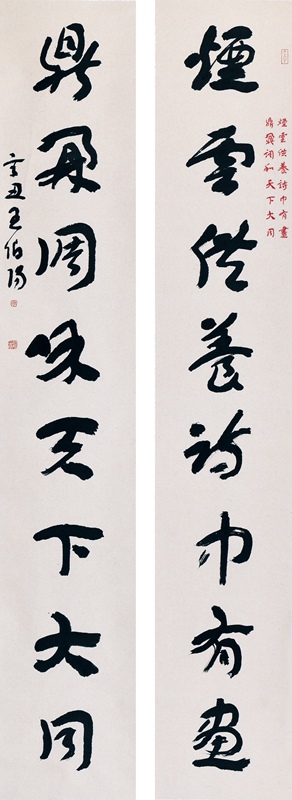 煙雲供養詩中有畫
煙雲供養詩中有畫
鼎鼐調和天下大同
鼎鼐調和天下大同
辛丑王伯陽